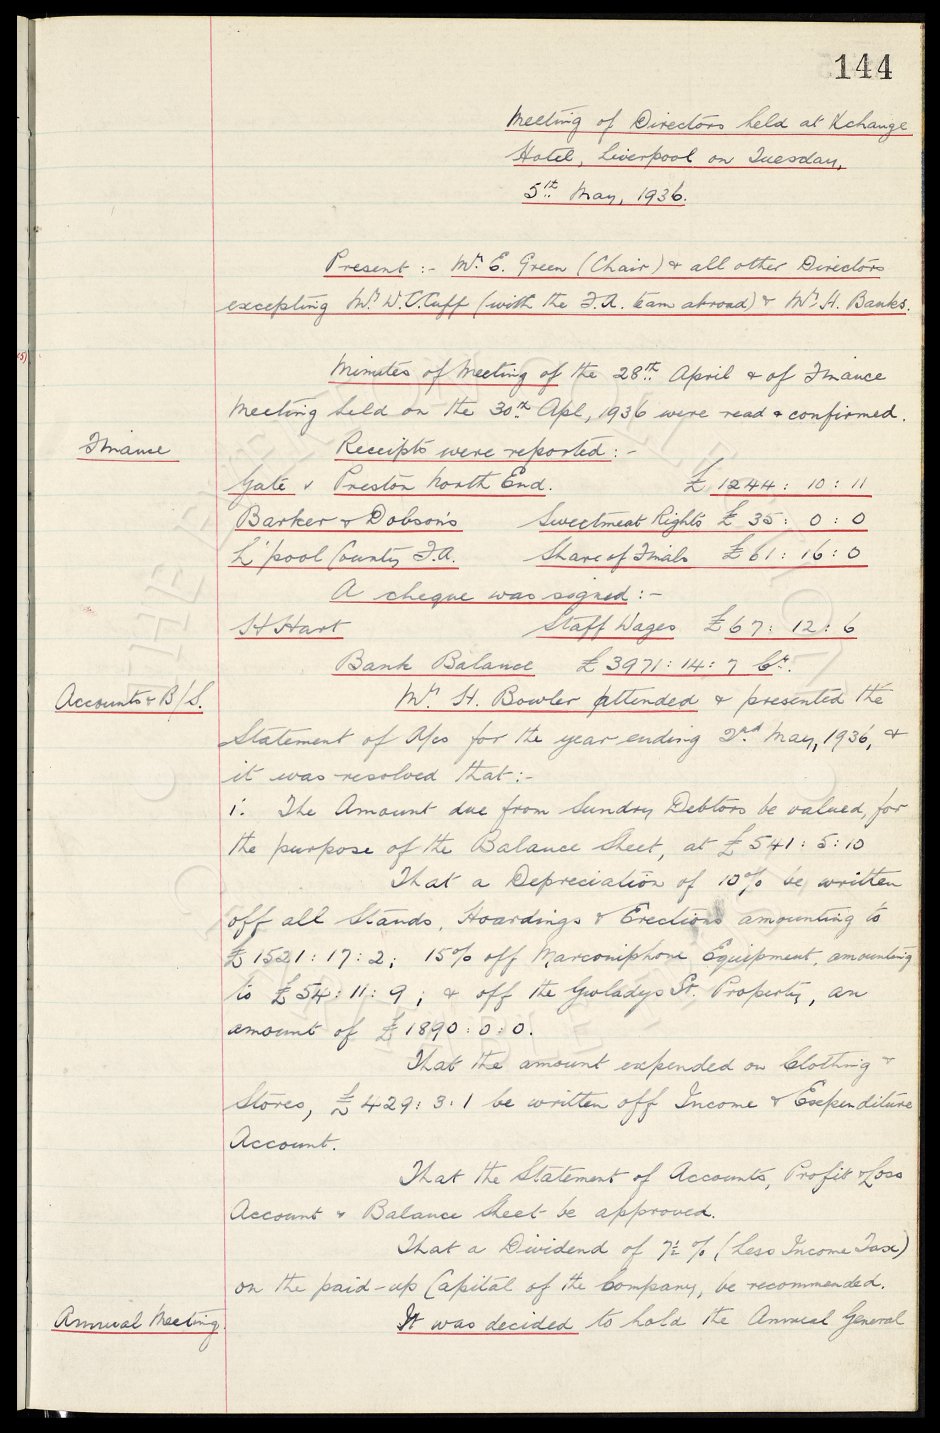 144
Meeting of Directors held at Xchange
Hotel, Liverpool on Tuesday,
5th May, 1936.
Present :- Mr. E. Green (Chair) & all other Directors
excepting Mr. W.C. Cuff (with the F.A. team abroad) & Mr. H. Banks.
Minutes of Meeting of the 28th April & of Finance
Meeting held on the 30th Apl, 1936 were read & confirmed.
Finance Receipts were reported :-
Gate v Preston North End. £ 1244 : 10 : 11
Barker & Dobson's Sweetmeat Rights £ 35 : 0 : 0
L'pool County F.A. Share of Finals £ 61 : 16 : 0
A cheque was signed :-
H Hart Staff Wages £ 67 : 12 : 6
Bank Balance £ 3971 : 14 : 7 Cr.
Accounts & B/S. Mr. H. Bowler attended & presented the
Statement of A/cs for the year ending 2nd May, 1936, &
it was resolved that :-
1. The Amount due from Sundry Debtors be valued, for
the purpose of the Balance Sheet, at £ 541 : 5 : 10
That a Depreciation of 10% be written
off all Stands, Hoardings & Erections amounting to
£ 1521 : 17 : 2 ; 15% off Marconiphone Equipment, amounting
to £ 54 : 11 : 9 ; & off the Gwladys St. Property, an
amount of £ 1890 : 0 : 0.
That the amount expended on Clothing &
Stores, £ 429 : 3 : 1 be written off Income & Expenditure
Account.
That the Statement of Accounts, Profit & Loss
Account & Balance Sheet be approved.
That a Dividend of 7½ % (Less Income Tax)
on the paid-up Capital of the Company, be recommended.
Annual Meeting. It was decided to hold the Annual General